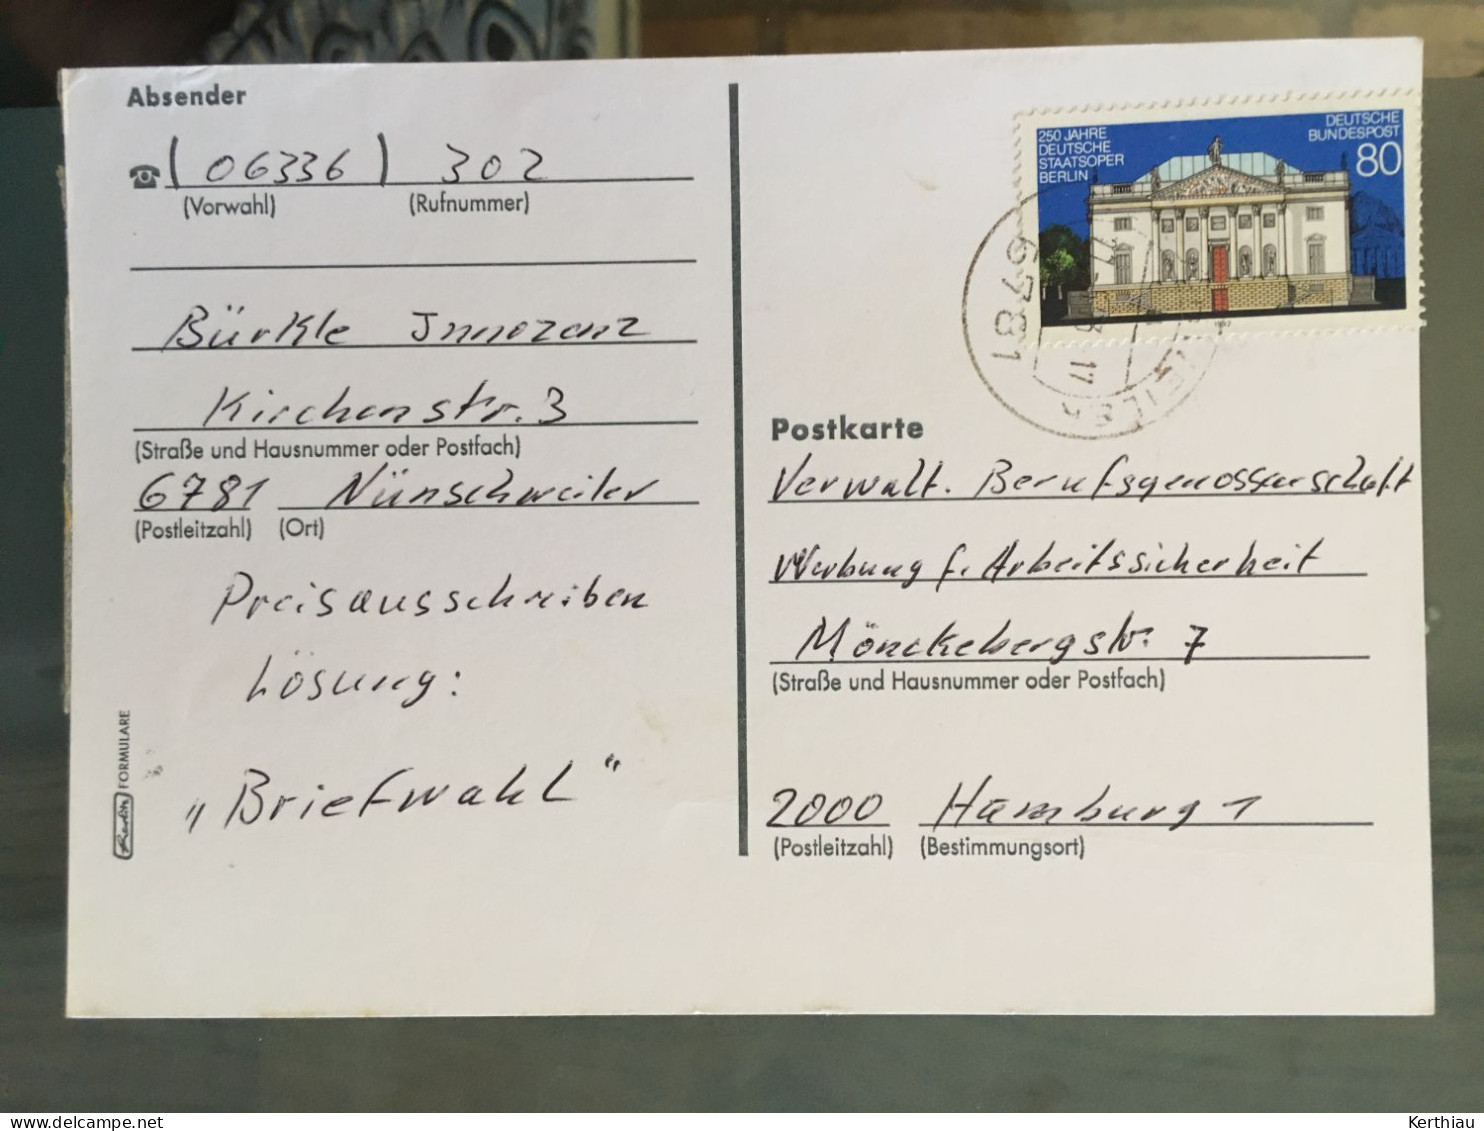 Absender
(06336) 302
(Vorwahl) (Rufnummer)
Bürkle Innozenz
Kirchenstr. 3
(Straße und Hausnummer oder Postfach)
6781 Nünschweiler
(Postleitzahl) (Ort)
Preisausschreiben
Lösung:
„Briefwahl"
FORMULARE
250 JAHRE
DEUTSCHE
STAATSOPER
BERLIN
DEUTSCHE
BUNDESPOST
80
1992
6781
Postkarte
Verwalt. Berufsgenossenschaft
Werbung f. Arbeitssicherheit
Mönckebergstr. 7
(Straße und Hausnummer oder Postfach)
2000 Hamburg 1
(Postleitzahl) (Bestimmungsort)
Kerthiau